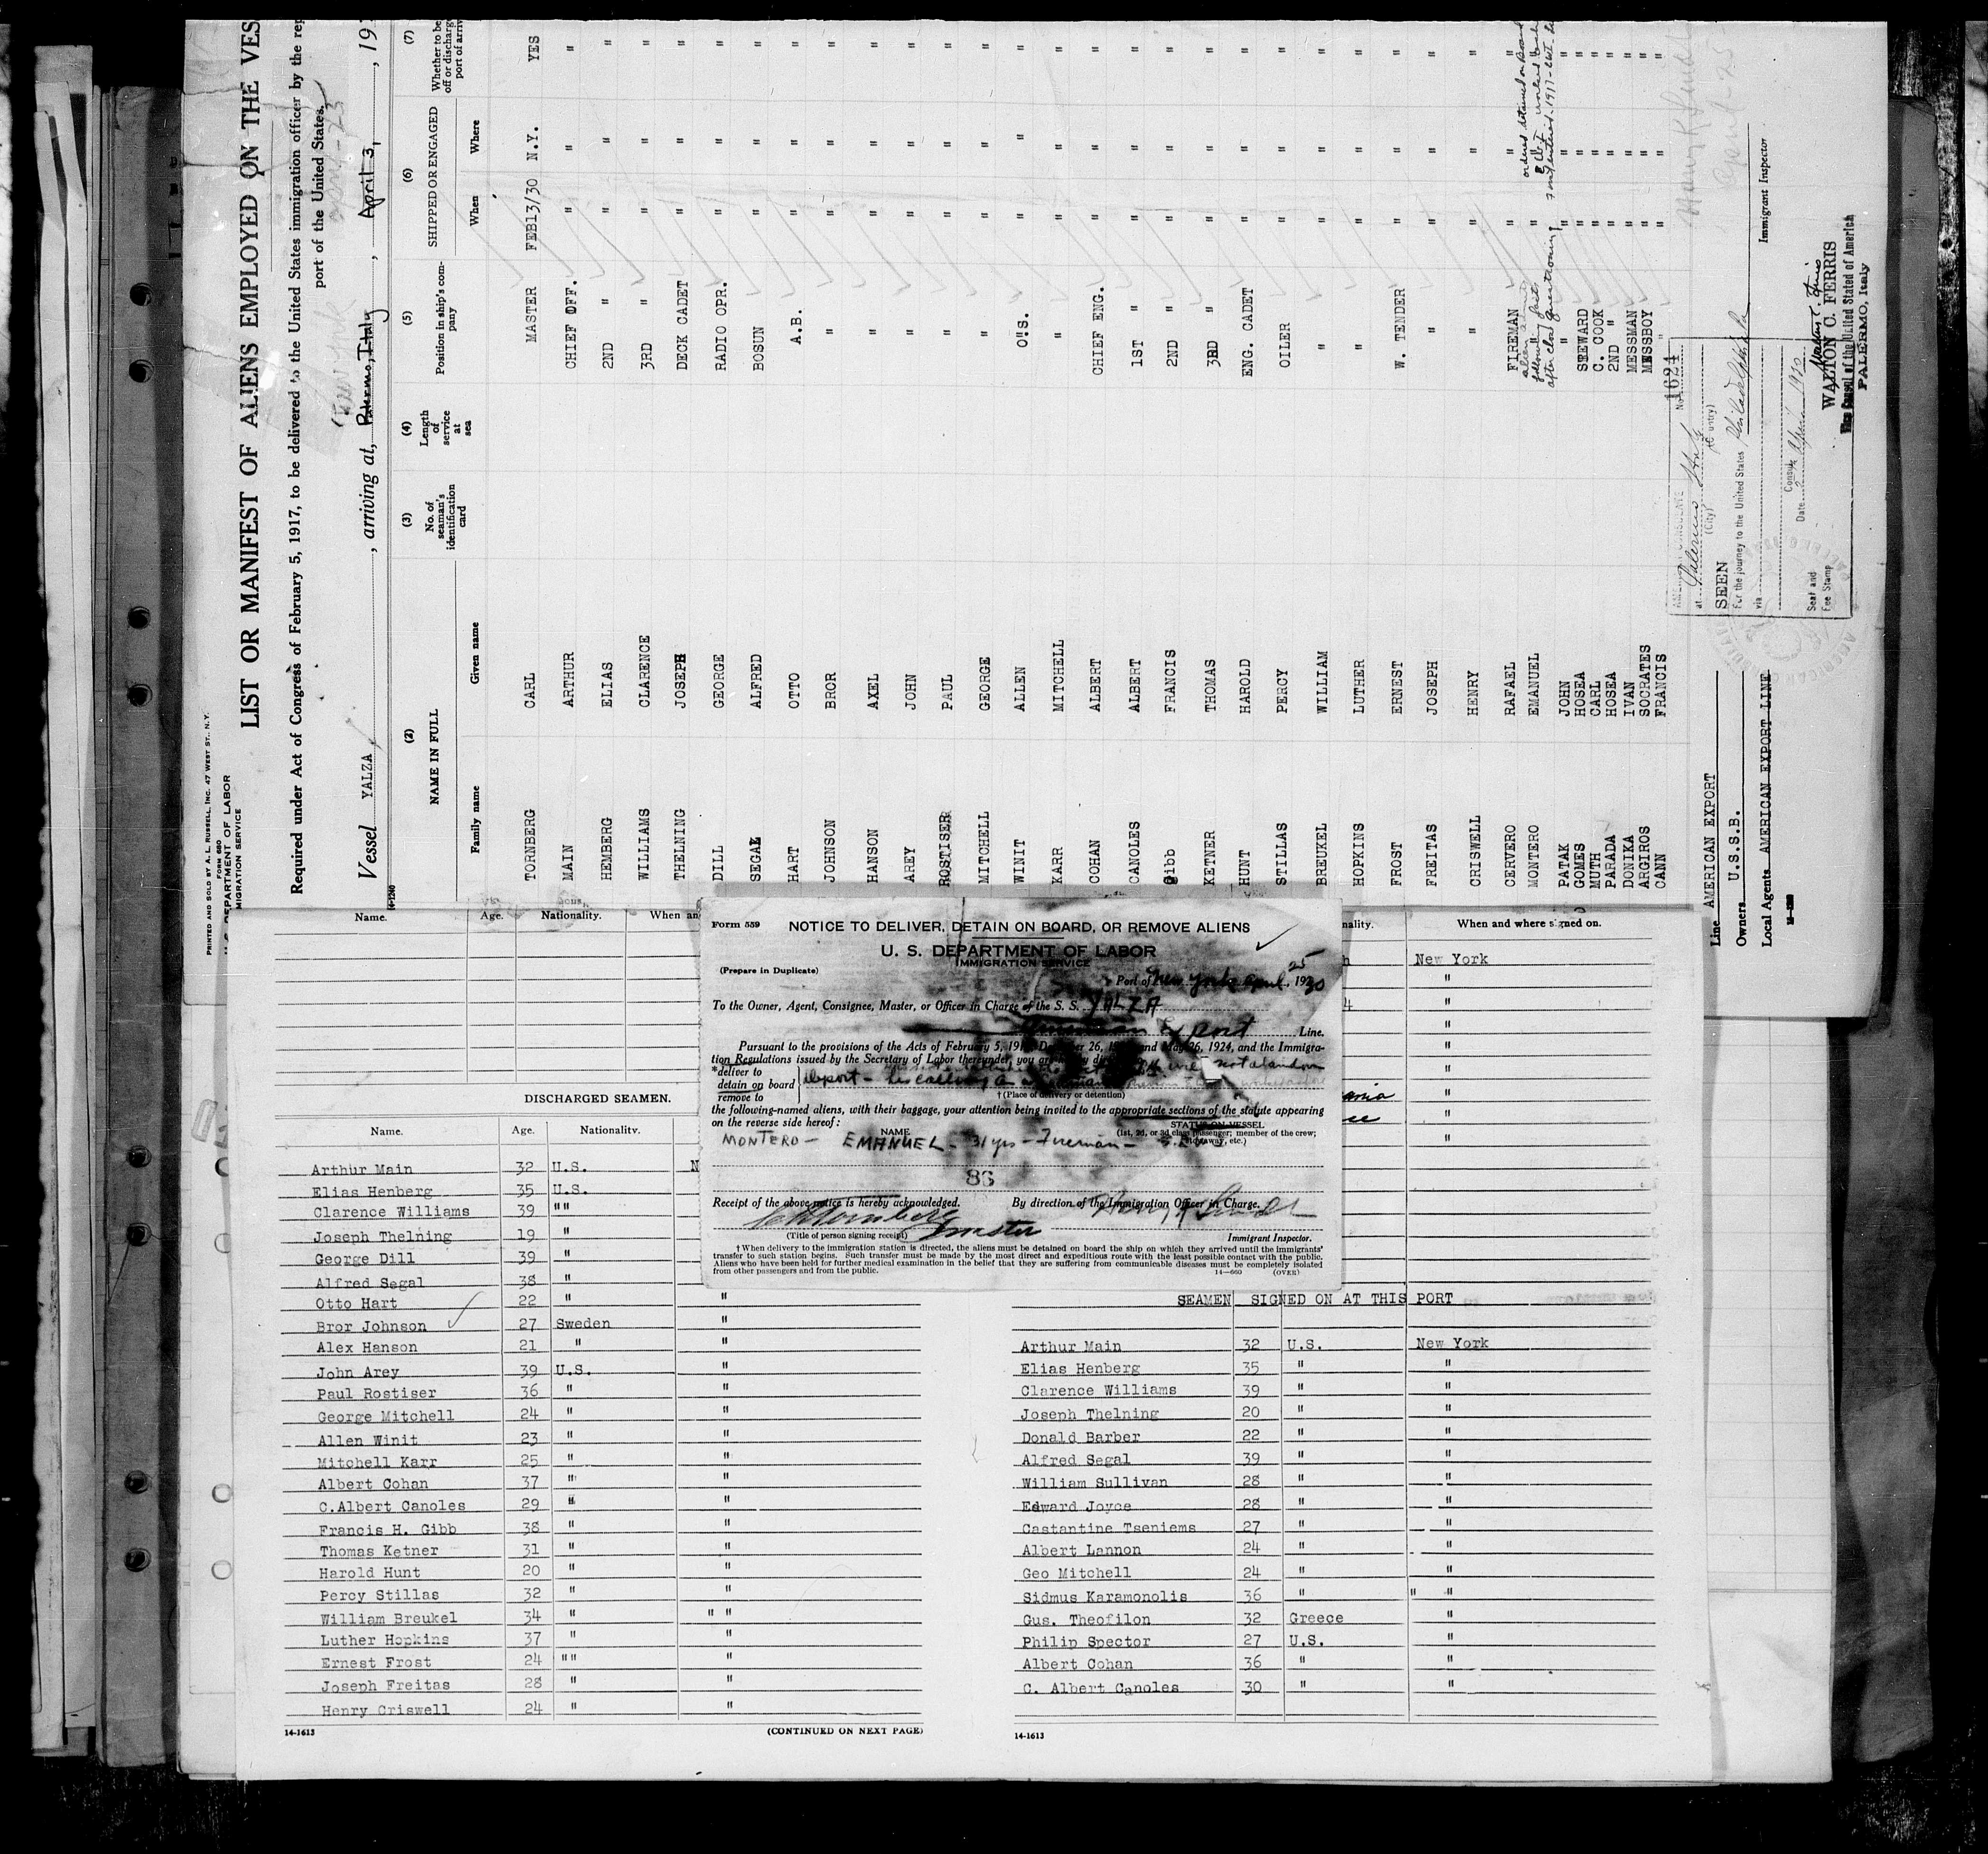 PRINTED AND SOLD BY A. L. RUSSELL, INC. 47 WEST ST., N.Y.
FORM 680
DEPARTMENT OF LABOR
MIGRATION SERVICE
LIST OR MANIFEST OF ALIENS EMPLOYED ON THE VES
Required under Act of Congress of February 5, 1917, to be delivered to the United States immigration officer by the rep
port of the United States.
Vessel YALZA, arriving at, Palermo, Italy, April 3, 19
14-1240
(2) (3) (4) (5) (6) (7)
NAME IN FULL No. of seaman's identification card Length of service at sea Position in ship's company SHIPPED OR ENGAGED Whether to be off or discharg port of arriv
Family name Given name When Where
TORNBERG CARL MASTER FEB13/30 N.Y. YES
MAIN ARTHUR CHIEF OFF. " " "
HEMBERG ELIAS 2ND " " " "
WILLIAMS CLARENCE 3RD " " " "
THELNING JOSEPH DECK CADET " " "
DILL GEORGE RADIO OPR. " " "
SEGAL ALFRED BOSUN " " "
HART OTTO A.B. " " "
JOHNSON BROR " " " "
HANSON AXEL " " " "
AREY JOHN " " " "
ROSTISER PAUL " " " "
MITCHELL GEORGE " " " "
WINIT ALLEN O.S. " " "
KARR MITCHELL " " " "
COHAN ALBERT CHIEF ENG. " " "
CANOLES ALBERT 1ST " " " "
Gibb FRANCIS 2ND " " " "
KETNER THOMAS 3RD " " " "
HUNT HAROLD ENG. CADET " " "
STILLAS PERCY OILER " " "
BREUKEL WILLIAM " " " "
HOPKINS LUTHER " " " "
FROST ERNEST W. TENDER " " "
FREITAS JOSEPH " " " "
CRISWELL HENRY " " "
CERVERO RAFAEL FIREMAN " " "
MONTERO EMANUEL " " " "
after close questioning
PATAK JOHN " " " "
GOMES HOSEA STEWARD " " "
MUTH CARL C. COOK " " "
PARADA HOSEA 2ND " " " "
DONIKA IVAN MESSMAN " " "
ARGIROS SOCRATES MESSBOY " " "
CANN FRANCIS " " " "
Line AMERICAN EXPORT
Owners U.S.S.B.
Local Agents AMERICAN EXPORT LINE
Immigrant Inspector
No. 1624
at Palermo, Italy
(City) (Country)
SEEN
For the journey to the United States Philadelphia
via
Consul
Date April 3 1930
Seal and
Fee Stamp
WALTON C. FERRIS
Consul of the United States of America
PALERMO, Italy
Form 559
NOTICE TO DELIVER, DETAIN ON BOARD, OR REMOVE ALIENS
U. S. DEPARTMENT OF LABOR
IMMIGRATION SERVICE
(Prepare in Duplicate)
Port of New York April 25, 1930
To the Owner, Agent, Consignee, Master, or Officer in Charge of the S. S. YALZA
Export Line.
Pursuant to the provisions of the Acts of February 5, 19 ber 26, and May 26, 1924, and the Immigra-
tion Regulations issued by the Secretary of Labor thereunder, you are
*deliver to
detain on board
remove to
† (Place of delivery or detention)
the following-named aliens, with their baggage, your attention being invited to the appropriate sections of the statute appearing
on the reverse side hereof:
NAME STATUS ON VESSEL
(1st, 2d, or 3d class passenger; member of the crew; stowaway, etc.)
MONTERO — EMANUEL — 31 yrs — Fireman —
86
Receipt of the above notice is hereby acknowledged. By direction of the Immigration Officer in Charge.
master
(Title of person signing receipt) Immigrant Inspector.
† When delivery to the immigration station is directed, the aliens must be detained on board the ship on which they arrived until the immigrants'
transfer to such station begins. Such transfer must be made by the most direct and expeditious route with the least possible contact with the public.
Aliens who have been held for further medical examination in the belief that they are suffering from communicable diseases must be completely isolated
from other passengers and from the public.
14—660 (OVER)
Name. Age. Nationality. When an
DISCHARGED SEAMEN.
Name. Age. Nationality.
Arthur Main 32 U.S. N
Elias Henberg 35 U.S.
Clarence Williams 39 ""
Joseph Thelning 19 "
George Dill 39 "
Alfred Segal 38 "
Otto Hart 22 " "
Bror Johnson 27 Sweden "
Alex Hanson 21 " "
John Arey 39 U.S. "
Paul Rostiser 36 " "
George Mitchell 24 " "
Allen Winit 23 " "
Mitchell Karr 25 " "
Albert Cohan 37 " "
C.Albert Canoles 29 " "
Francis H. Gibb 38 " "
Thomas Ketner 31 " "
Harold Hunt 20 " "
Percy Stillas 32 " "
William Breukel 34 " " "
Luther Hopkins 37 " "
Ernest Frost 24 "" "
Joseph Freitas 28 " "
Henry Criswell 24 " "
14-1613 (CONTINUED ON NEXT PAGE)
nality. When and where signed on.
New York
"
"
"
"
"
"
"
"
SEAMEN SIGNED ON AT THIS PORT
Arthur Main 32 U.S. New York
Elias Henberg 35 " "
Clarence Williams 39 " "
Joseph Thelning 20 " "
Donald Barber 22 " "
Alfred Segal 39 " "
William Sullivan 28 " "
Edward Joyce 28 " "
Castantine Tseniems 27 " "
Albert Lannon 24 " "
Geo Mitchell 24 " "
Sidmus Karamonolis 36 " " "
Gus. Theofilon 32 Greece "
Philip Spector 27 U.S. "
Albert Cohan 36 " "
C. Albert Canoles 30 " "
14-1613